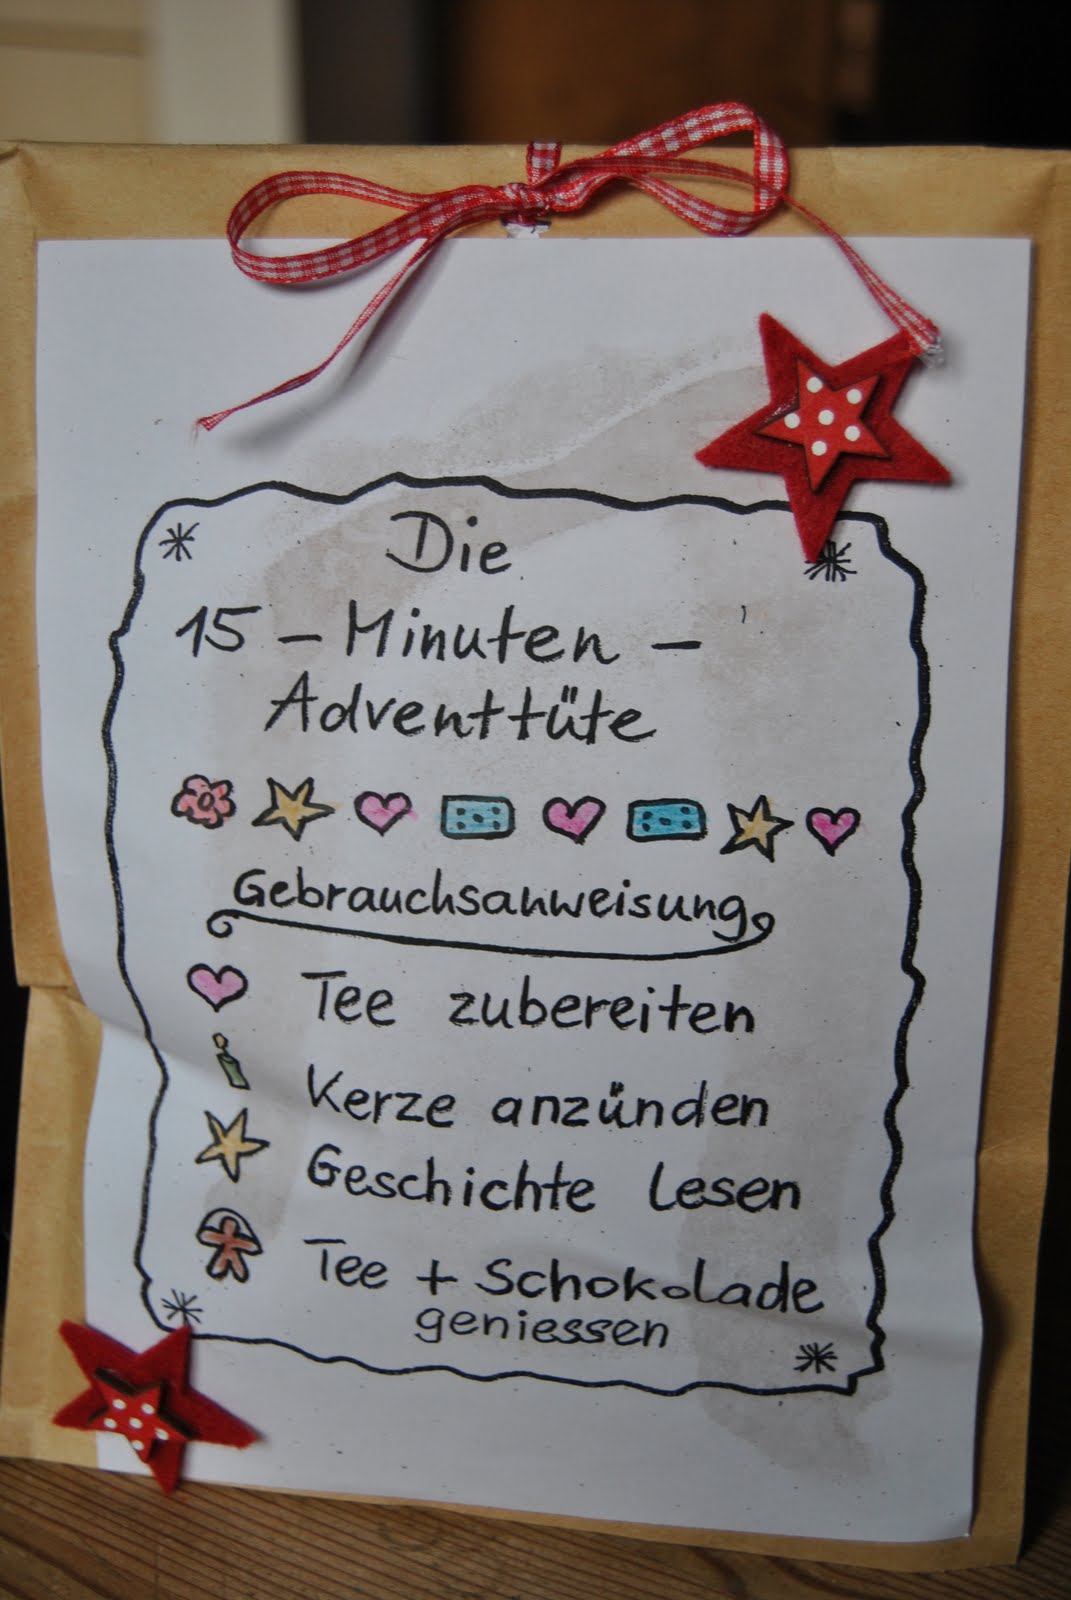 Die
15 - Minuten -
Adventtüte
Gebrauchsanweisung
Tee zubereiten
Kerze anzünden
Geschichte lesen
Tee + Schokolade
geniessen